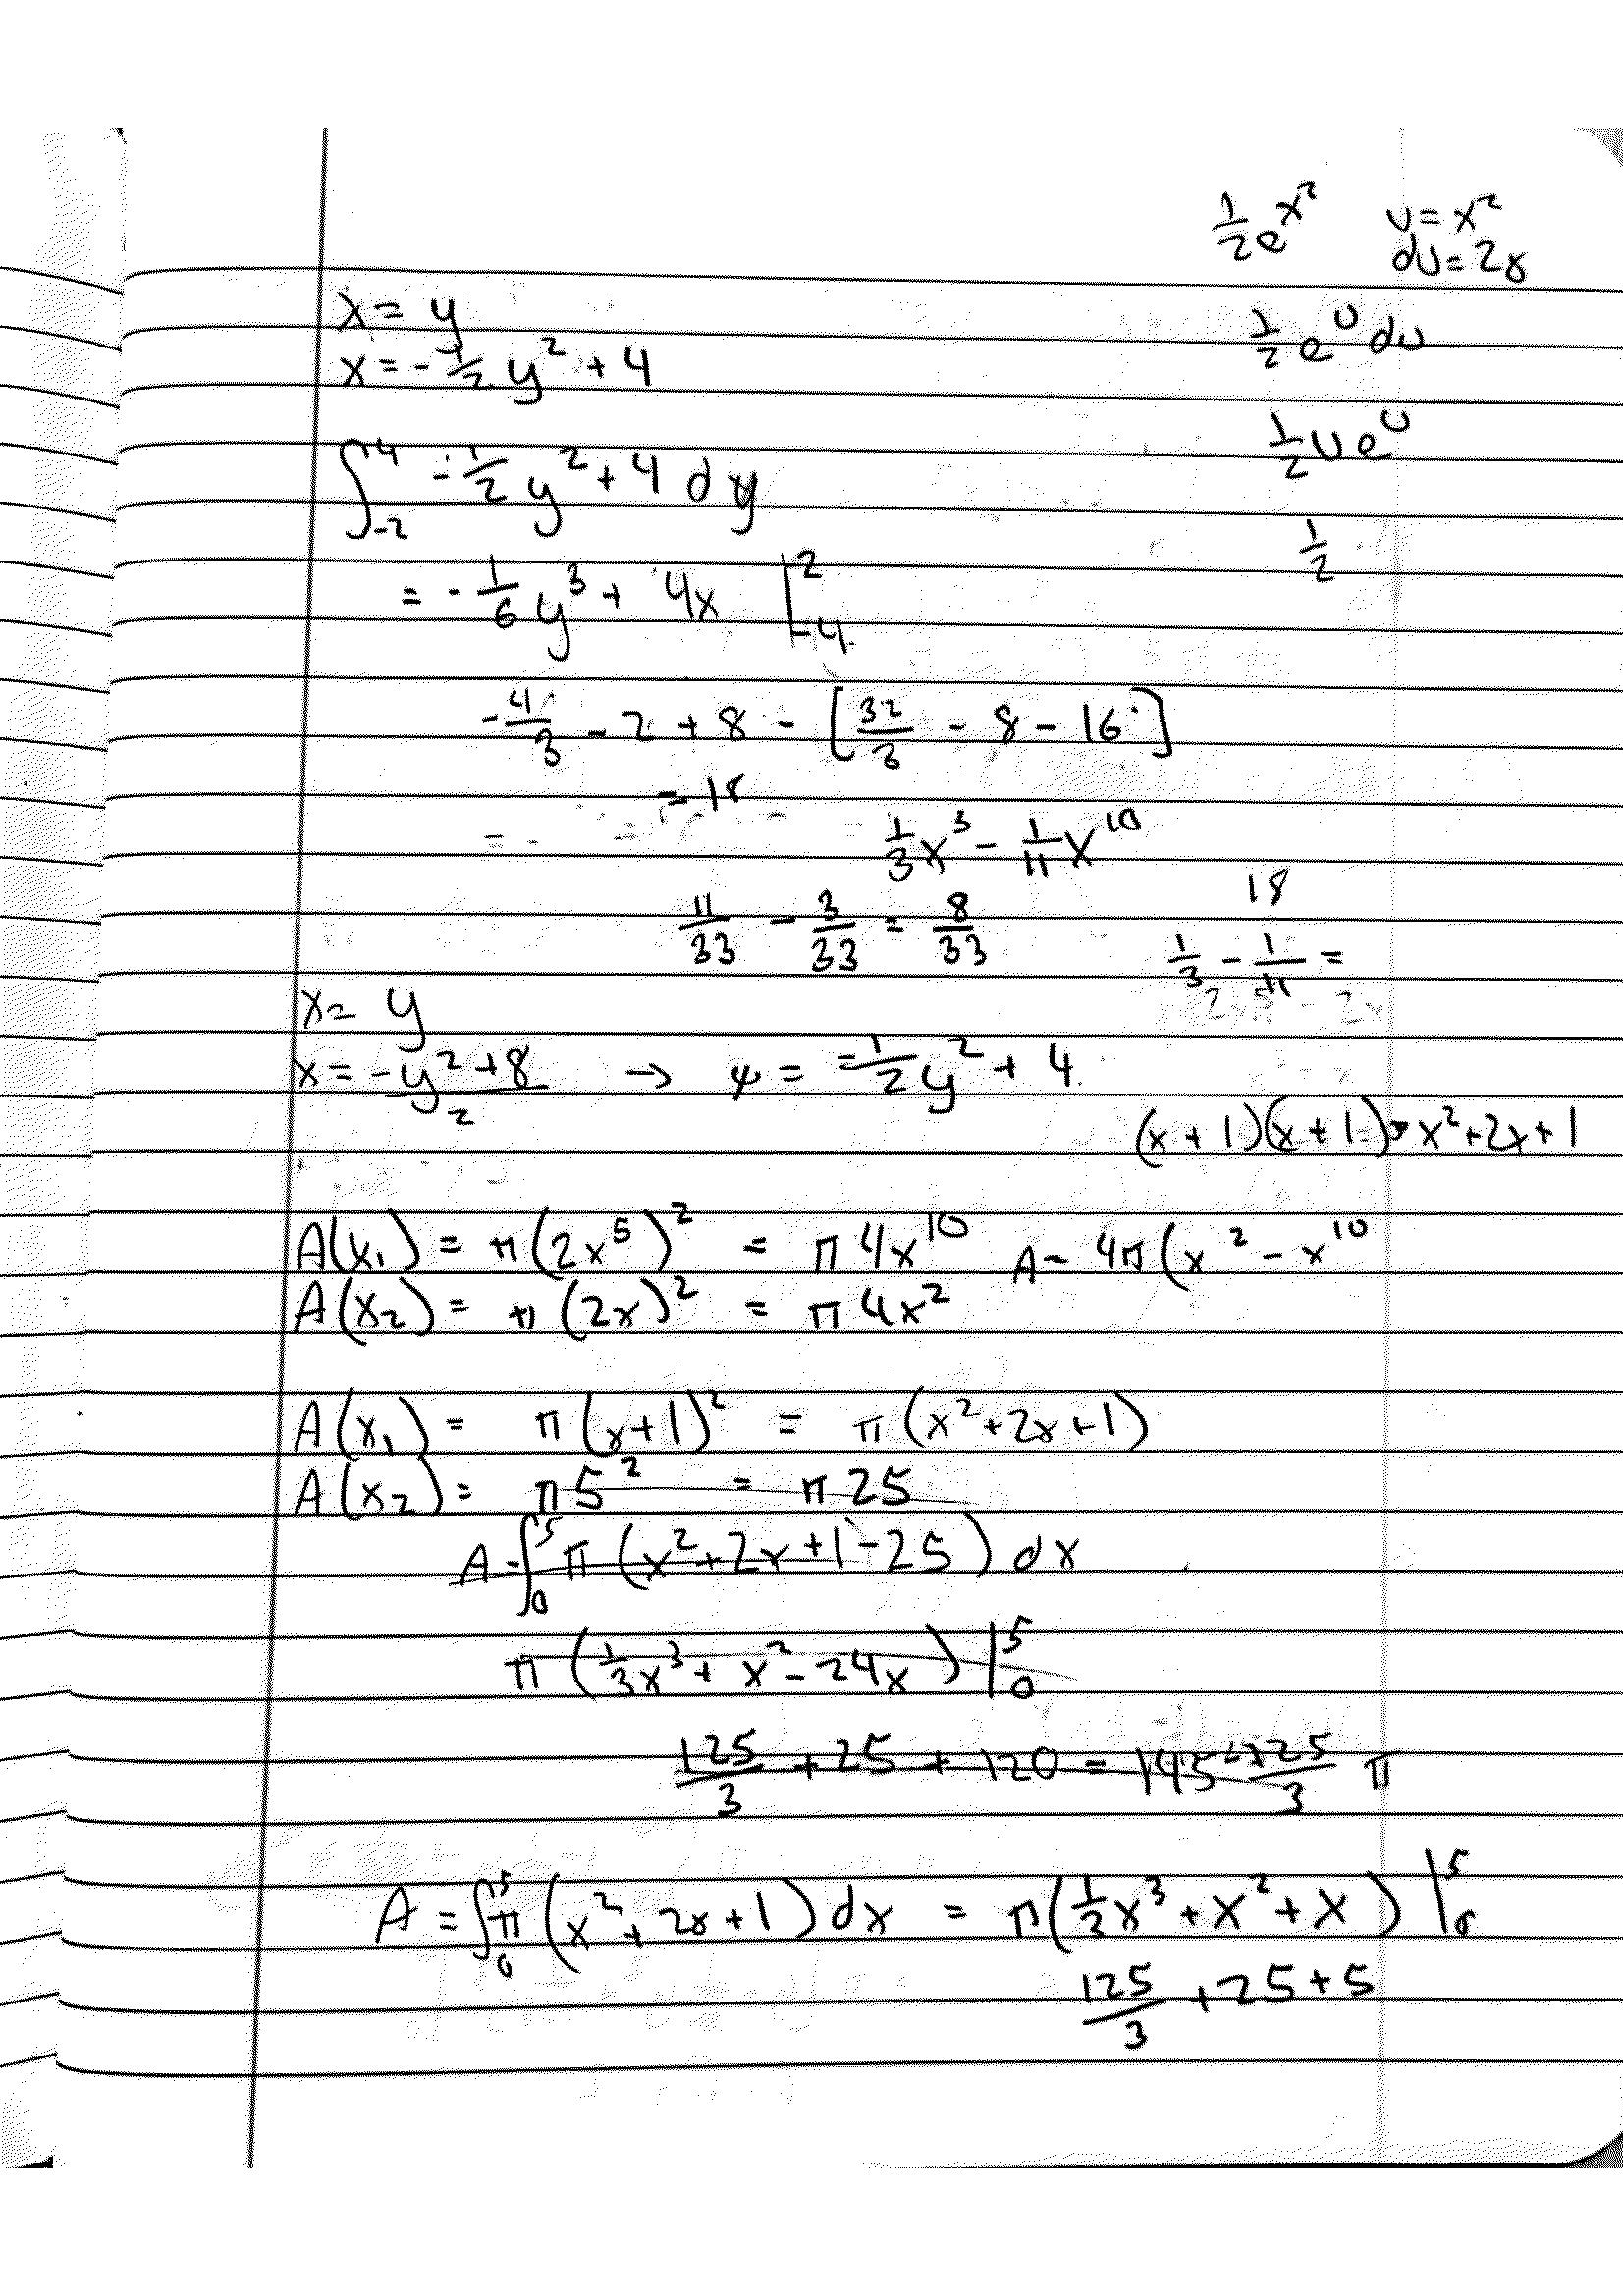 1/2 e^x^2 u = x^2
du = 2x
x = y
1/2 e^u du
x = - 1/2 y^2 + 4
1/2 u e^u
∫_-2^4 - 1/2 y^2 + 4 dy
1/2
= - 1/6 y^3 + 4x |_-4^2
- 4/3 - 2 + 8 - [32/3 - 8 - 16]
= 18
1/3 x^3 - 1/11 x^10
18
11/33 - 3/33 = 8/33
1/3 - 1/11 =
x = y
x = -y^2 + 8 / 2 → y = - 1/2 y^2 + 4
(x + 1)(x + 1) = x^2 + 2x + 1
A(x_1) = π(2x^5)^2 = π 4x^10 A = 4π(x^2 - x^10
A(x_2) = π(2x)^2 = π 4x^2
A(x_1) = π(x+1)^2 = π(x^2 + 2x + 1)
A(x_2) = π 5^2 = π 25
A = ∫_0^5 π(x^2 + 2x + 1 - 25) dx
π(1/3 x^3 + x^2 - 24x) |_0^5
125/3 + 25 + 120 = 145 + 125/3 π
A = ∫_0^5 π(x^2 + 2x + 1) dx = π(1/3 x^3 + x^2 + x) |_0^5
125/3 + 25 + 5